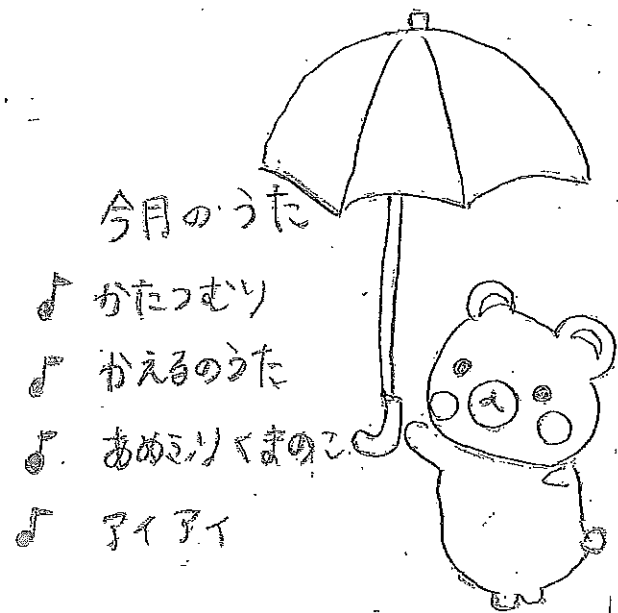 今月のうた
♪ かたつむり
♪ かえるのうた
♪ あめふりくまのこ
♪ アイアイ